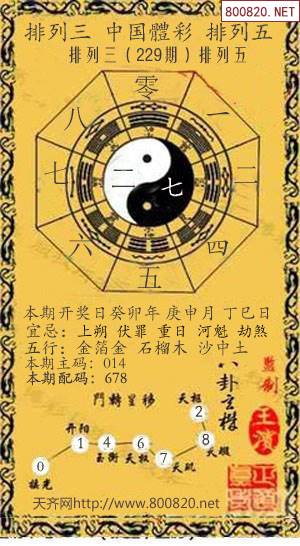 800820.NET
排列三 中国體彩 排列五
排列三（229期）排列五
零
八 一
七 二 七 二
六 四
五
本期开奖日癸卯年 庚申月 丁巳日
宜忌：上朔 伏罪 重日 河魁 劫煞
五行：金箔金 石榴木 沙中土
本期主码：014
本期配码：678
八卦玄機
監制
門轉星移
天枢
2
开阳
1 4 6 8
玉衡 天权 天璇
7
0 天玑
摇光
天齐网http://www.800820.net